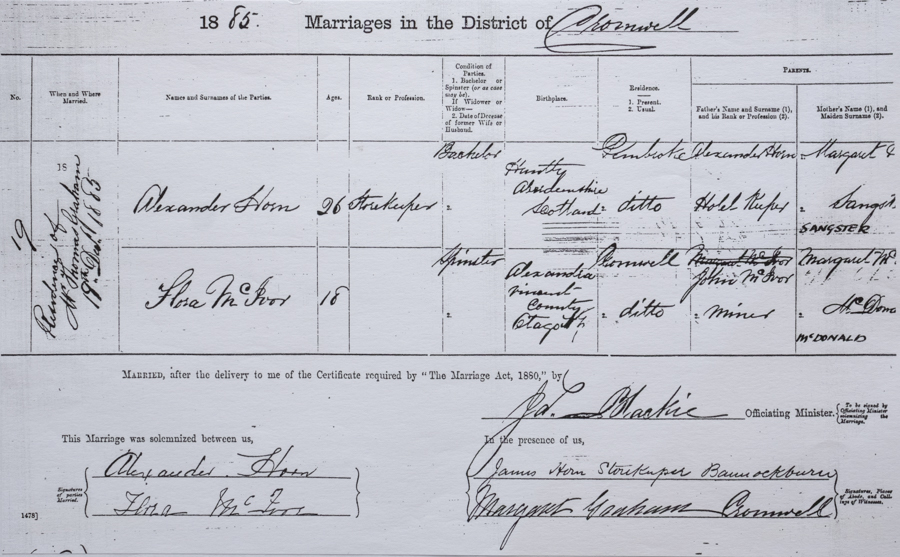 1885. Marriages in the District of Cromwell
No.
When and Where Married.
Names and Surnames of the Parties.
Ages.
Rank or Profession.
Condition of Parties.
1. Bachelor or Spinster (or as case may be).
If Widower or Widow—
2. Date of Decease of former Wife or Husband.
Birthplace.
Residence.
1. Present.
2. Usual.
PARENTS.
Father's Name and Surname (1), and his Rank or Profession (2).
Mother's Name (1), and Maiden Surname (2).
19
18
Residence of
Mr Thomas Graham
1885
Alexander Horn
26
Storekeeper
Bachelor
2.
Huntly
Aberdeenshire
Scotland
Pembroke
2. ditto
Alexander Horn
2. Hotel Keeper
Margaret
2. Sangst
SANGSTER
Flora McIvor
18
Spinster
2.
Alexandra
Vincent
County
Otago NZ
Cromwell
2. ditto
John McIvor
2. miner
Margaret Mc
2. McDona
McDONALD
MARRIED, after the delivery to me of the Certificate required by "The Marriage Act, 1880," by
Jas. Blackie Officiating Minister.
To be signed by Officiating Minister solemnizing the Marriage.
This Marriage was solemnized between us,
In the presence of us,
Signatures of parties Married.
Alexander Horn
Flora McIvor
James Horn Storekeeper Bannockburn
Margaret Graham Cromwell
Signatures, Places of Abode, and Callings of Witnesses.
1478]